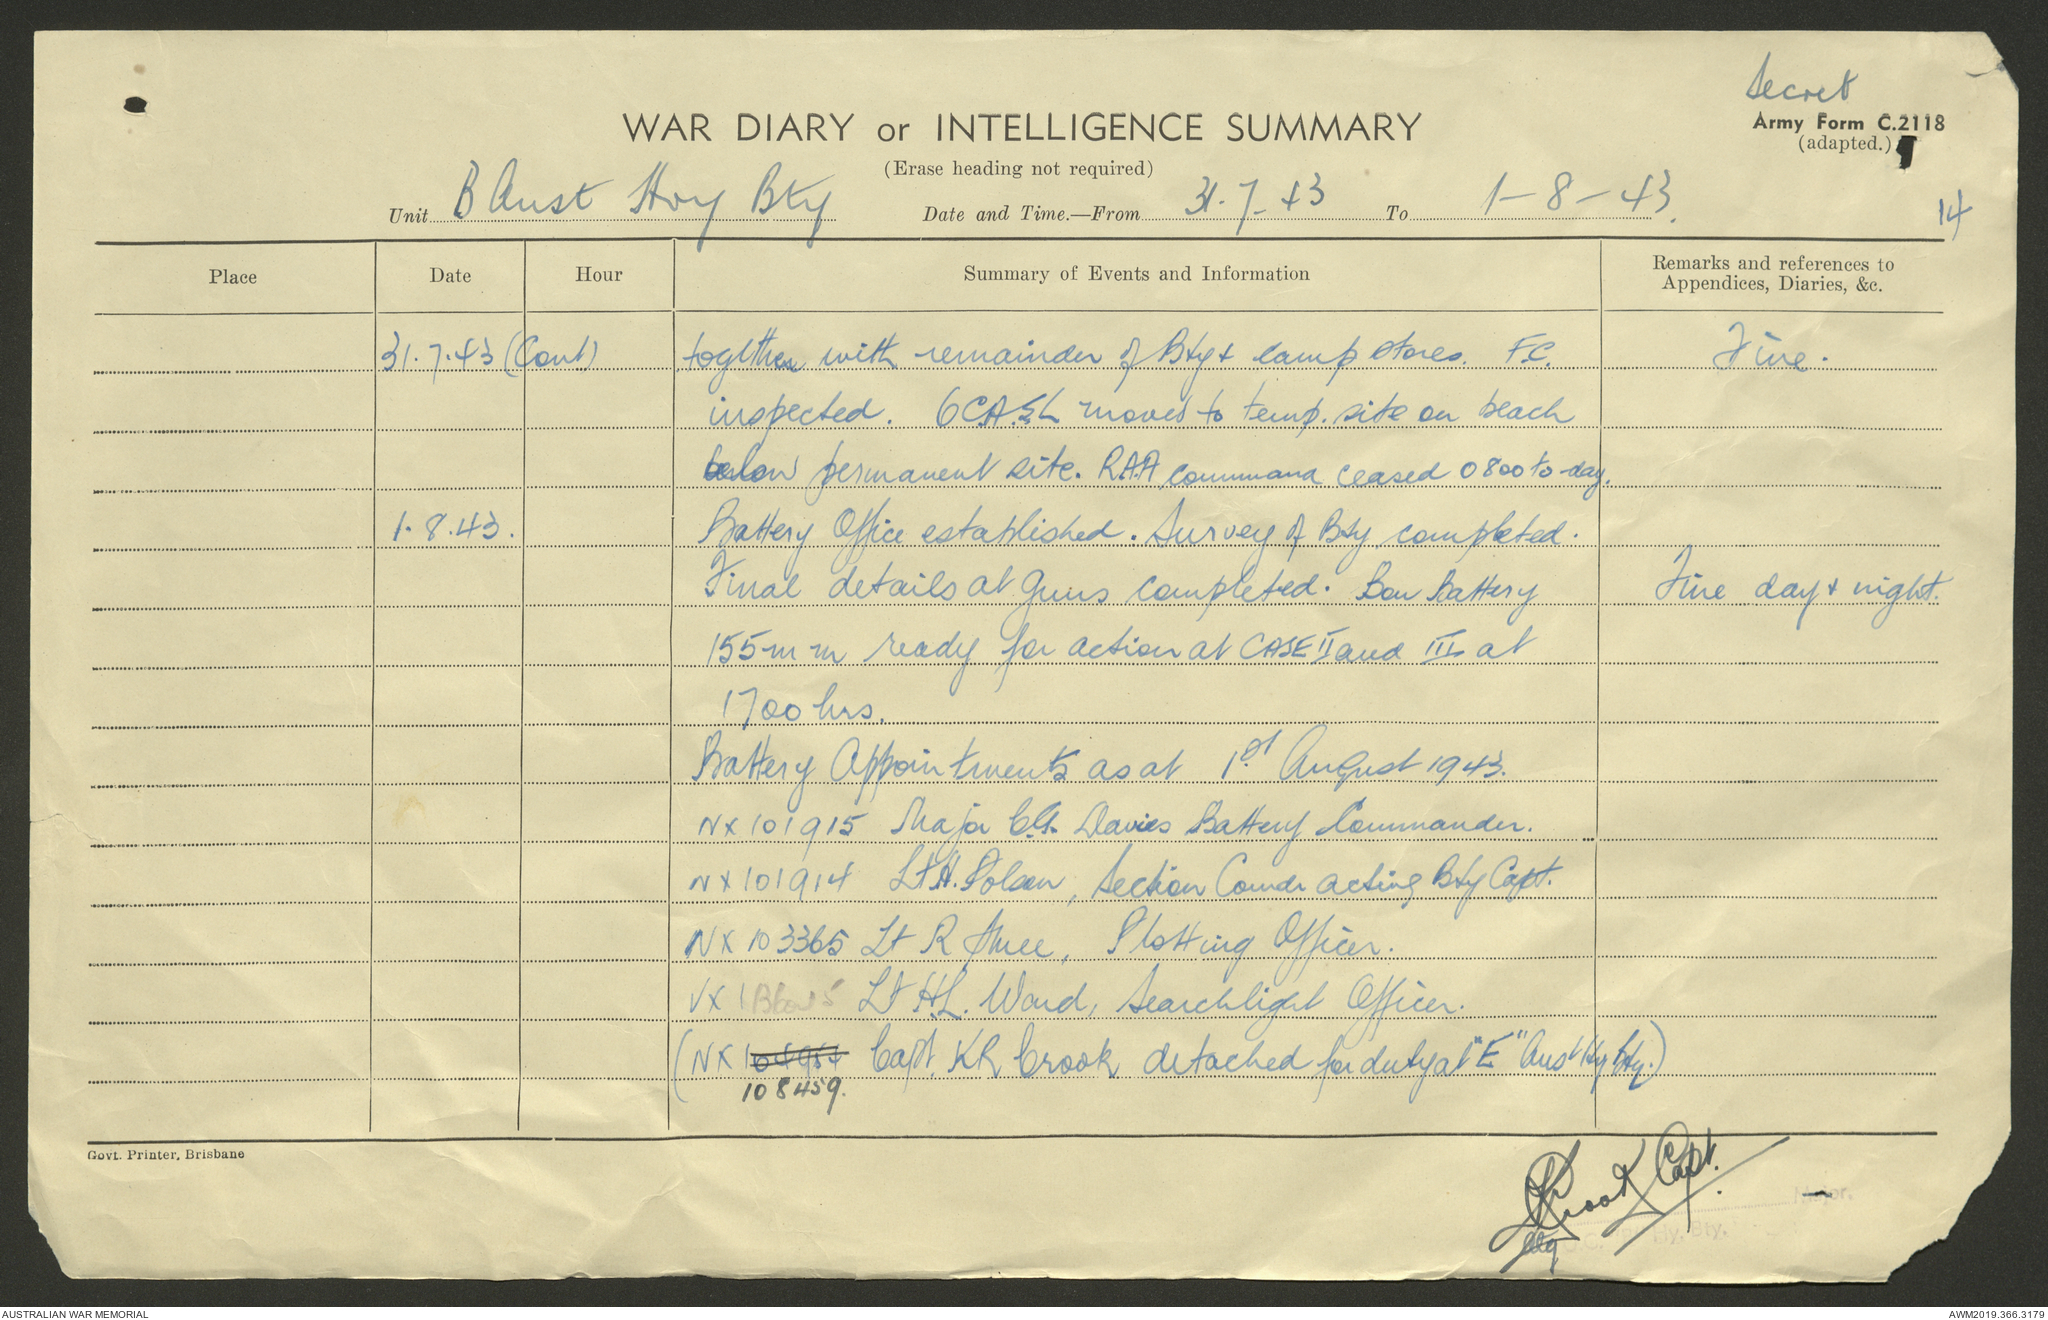 Secret
WAR DIARY or INTELLIGENCE SUMMARY
Army Form C.2118
(adapted.)
(Erase heading not required)
Unit B Aust Hvy Bty Date and Time.—From 31.7.43 To 1-8-43.
14
Place Date Hour Summary of Events and Information Remarks and references to
Appendices, Diaries, &c.
31.7.43 (Cont) together with remainder of Bty & camp stores. F.C. Fine.
inspected. 6 C.A.S.L moved to temp. site on beach
below permanent site. R.A.A command ceased 0800 to-day.
1.8.43. Battery Office established. Survey of Bty completed.
Final details at guns completed. Bon Battery Fine day & night.
155 mm ready for action at CASE II and III at
1700 hrs.
Battery Appointments as at 1st August 1943.
NX101915 Major C.G. Davies Battery Commander.
NX101914 Lt A. Polson, Section Comdr acting Bty Capt.
NX103365 Lt R , Plotting Officer.
VX1 Lt H.L. Ward, Searchlight Officer.
(NX Capt. KR Crook detached for duty at "E" Aust Hy Bty.)
108459.
Govt. Printer, Brisbane
KRCrook Capt.
Major.
Hy. Bty.
AUSTRALIAN WAR MEMORIAL
AWM2019.366.3179